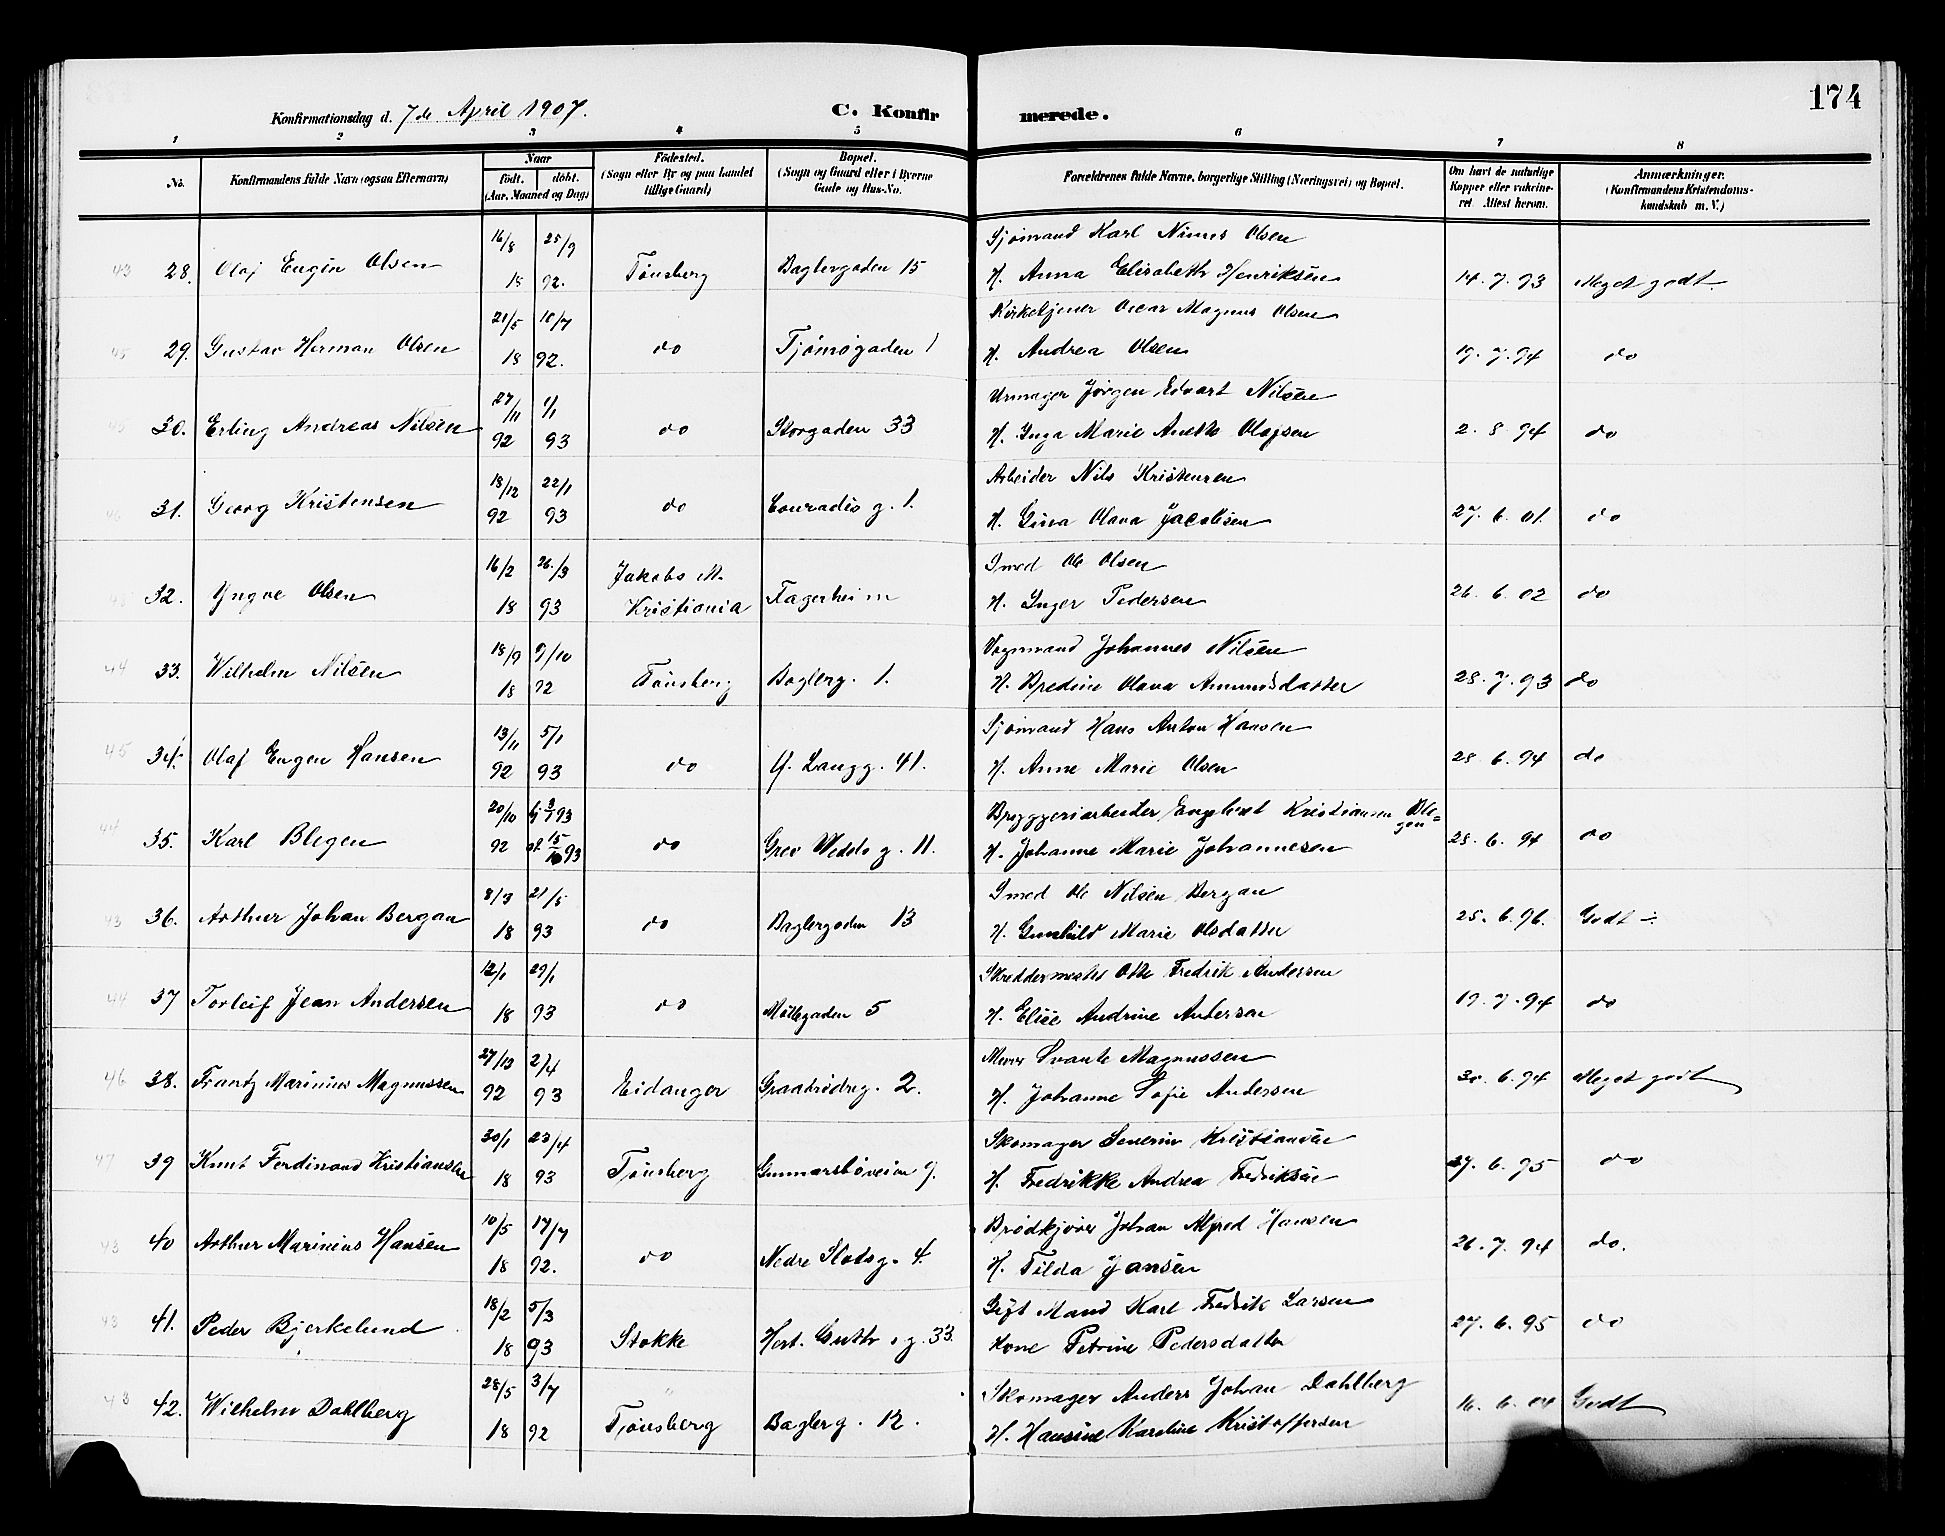 174
Konfirmationsdag d. 7de April 1907. C. Konfirmerede.
1 2 3 4 5 6 7 8
No. Konfirmandens fulde Navn (ogsaa Efternavn) Naar födt. döbt. (Aar, Maaned og Dag) Födested. (Sogn eller By og paa Landet tillige Gaard) Bopæl. (Sogn og Gaard eller i Byerne Gade og Hus-No. Forældrenes fulde Navne, borgerlige Stilling (Næringsvei) og Bopæl. Om havt de naturlige Kopper eller vakcineret. Attest herom. Anmærkninger. (Konfirmandens Kristendomskundskab m. V.)
43 28. Olaf Eugen Olsen 16/8 25/9 18 92. Tönsberg Baglergaden 15 Sjömand Karl Olsen
H. Anna Elisabeth Henriksen 14.7.93 Meget godt.
45 29. Gustav Herman Olsen 21/5 10/7 18 92. do Tjömögaden 1 Kirketjener Oscar Magnus Olsen
H. Andrea Olsen 19.7.94 do
45 30. Erling Andreas Nilsen 27/11 1/1 92 93 do Storgaden 33 Urmager Jörgen Edvart Nilsen
H. Inga Marie Anette Olafsen 2.8.94 do
46 31. Georg Kristensen 18/12 22/1 92 93 do Conradis g. 1. Arbeider Nils Kristensen
H. Olava Jacobsen 27.6.01. do
32. Yngve Olsen 16/2 26/3 18 93 Jakobs M. Kristiania Fagerheim Smed Ole Olsen
H. Inger Pedersen 26.6.02 do
44 33. Wilhelm Nilsen 18/9 9/10 18 92 Tönsberg Baglerg. 1. Vognmand Johannes Nilsen
H. Bredine Olava Amundsdatter 28.7.93 do
45 34. Olaf Eugen Hansen 13/11 5/1 92 93 do Langg. 41. Sjömand Hans Anton Hansen
H. Anne Marie Olsen 28.6.94 do
44 35. Karl Blegen 20/10 hj 3/1 93 92 15/10 93 do Grev Wedels g. 11. Bryggeriarbeider Engebret Kristiansen Blegen
H. Johanne Marie Johannesen 28.6.94 do
43 36. Arthur Johan Bergan 8/3 21/5 18 93 do Baglergaden 13 Smed Ole Nilsen Bergan
H. Gunhild Marie Olsdatter 25.6.96. Godt ÷
44 37 Torleif Jean Andersen 12/1 29/1 18 93 do Möllegaden 5 Skreddermester Otto Fredrik Andersen
H. Elise Andrine Andersen 19.7.94 do
46 38. Frantz Marinius Magnussen 27/12 2/4 92 93 Eidanger Graabrödreg. 2. Murer Svante Magnussen
H. Johanne Sofie Andersen 30.6.94 Meget godt
47 39 Knut Ferdinand Kristiansen 30/1 23/4 18 93 Tönsberg Gunnarsböveien 9. Skomager Severin Kristiansen
H. Fredrikke Andrea Fredriksen 27.6.95 do
43 40 Arthur Marinius Hansen 10/5 17/7 18 92. do Nedre Slotsg. 4. Brödkjörer Johan Alfred Hansen
H. Tilda Jansen 26.7.94 do.
43 41. Peder Bjerkelund 18/2 5/3 18 93 Stokke Hert. Guth. s g. 33. Gift Mand Karl Fredrik Larsen
Kone Petrine Pedersdatter 27.6.95 do
43 42. Wilhelm Dahlberg 28/5 3/7 18 92 Tönsberg Baglerg. 12. Skomager Anders Johan Dahlberg
H. Hansine Karoline Kristoffersen 16.6.04 Godt